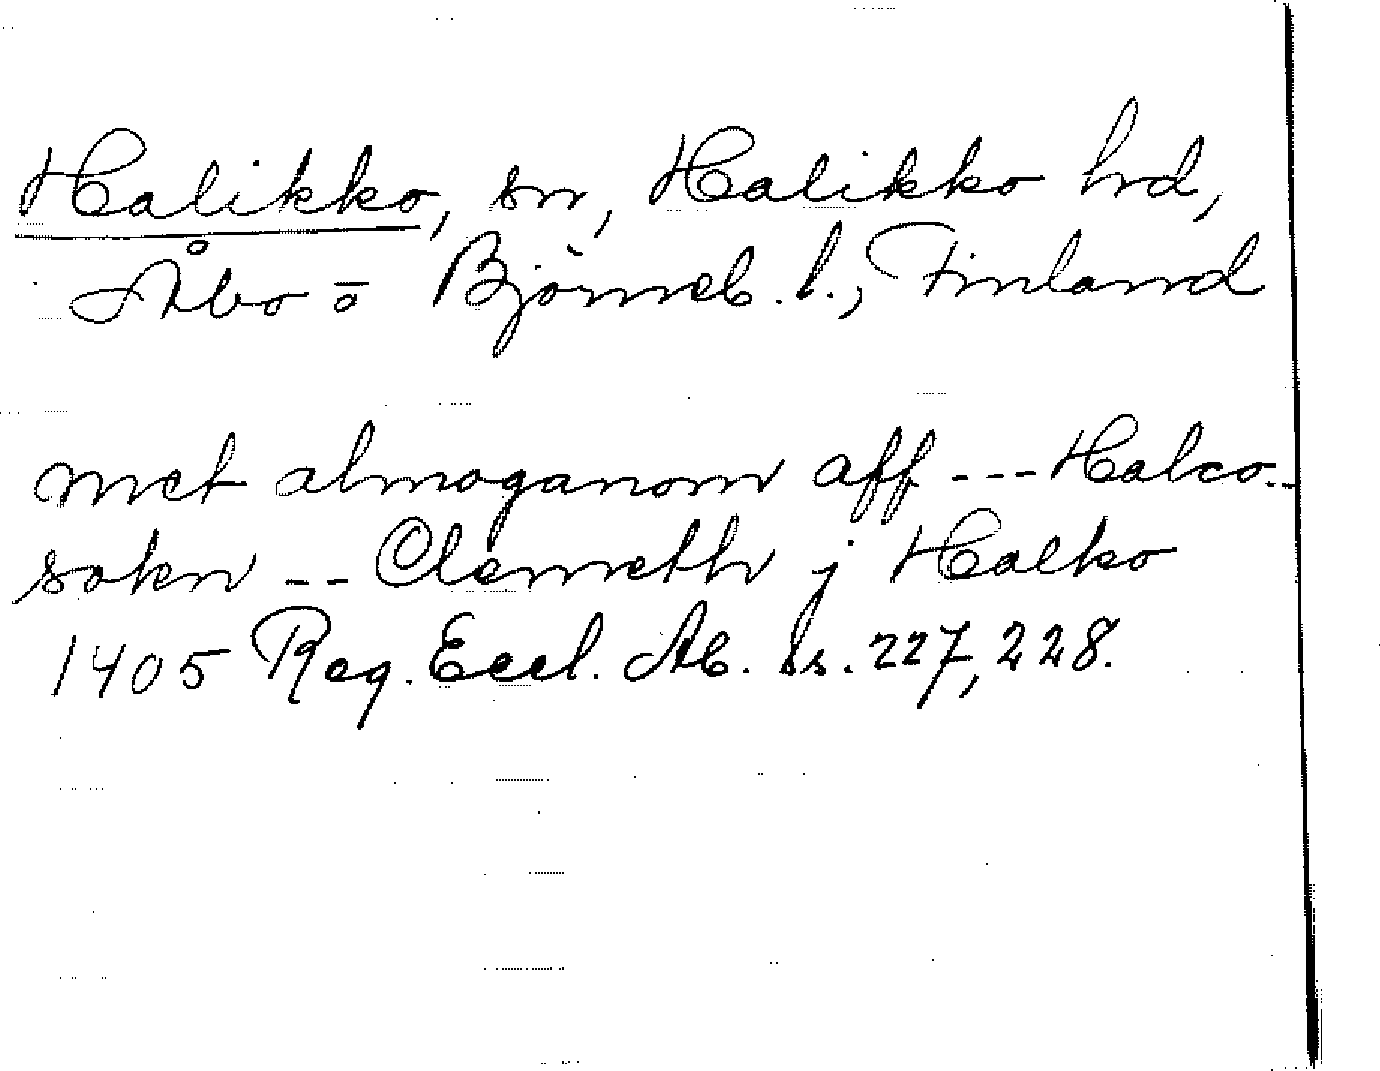 Halikko, sn, Halikko hd,
Åbo o Björneb. l., Finland
met almoganom aff --- Halco-
sokn -- Clemeth j Halko
1405 Reg. Eccl. Ab. ss. 227, 228.